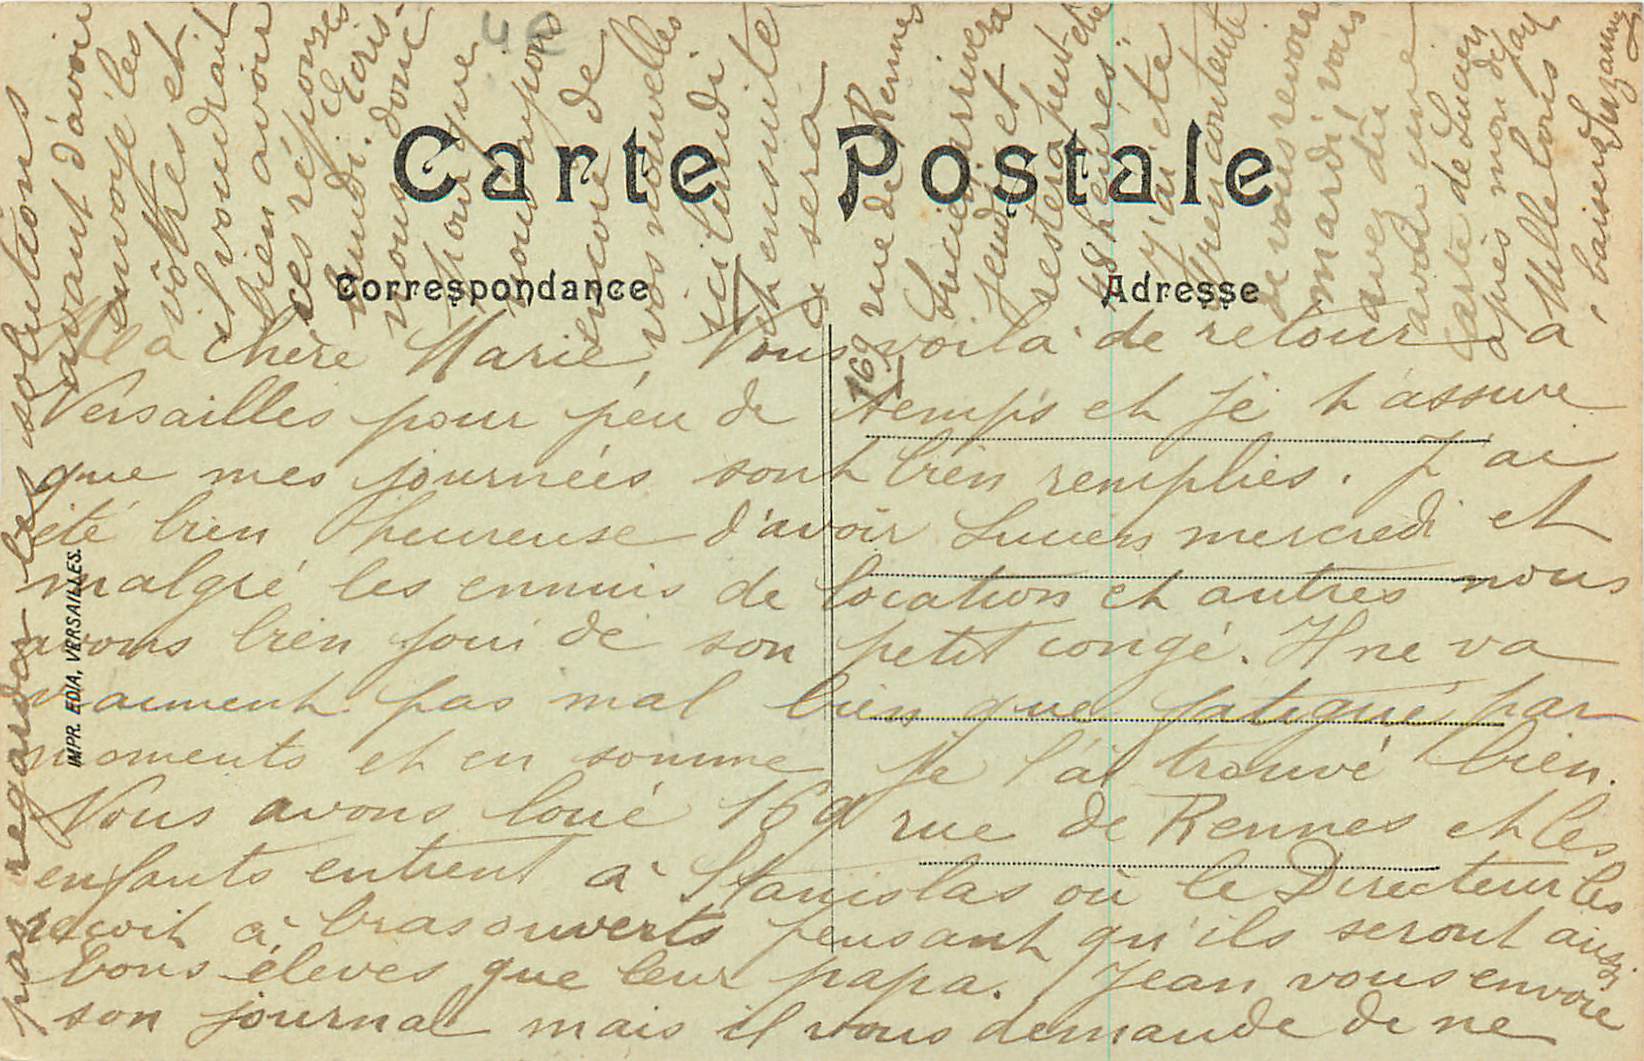 Carte Postale
Correspondance
Adresse
Ma chère Marie, Nous voilà de retour à
Versailles pour peu de temps et je t'assure
que mes journées sont bien remplies. J'ai
été bien heureuse d'avoir Lucien mercredi et
malgré les ennuis de location et autres nous
avons bien joui de son petit congé. Il ne va
vraiment pas mal bien que fatigué par
moments et en somme je l'ai trouvé bien.
Nous avons loué 169 rue de Rennes et les
enfants entrent à Stanislas où le Directeur les
reçoit à bras ouverts pensant qu'ils seront aussi
bons élèves que leur papa. Jean vous envoie
son journal mais il vous demande de ne
pas regarder les solutions
avant d'avoir
envoyé les
vôtres et
il voudrait
bien avoir
ces réponses
lundi. Ecris-
nous donc
pour que
nous ayons
encore de
vos nouvelles
ici lundi
et ensuite
ce sera
169 rue de Rennes
Lucien arrivera
jeudi et
restera peut-être
48 heures.
J'ai été
très contente
de vous revoir
mardi, vous
avez dû
avoir une
carte de Lucien
après mon départ
Mille bons
baisers
Suzanne
IMPR. EDIA, VERSAILLES.